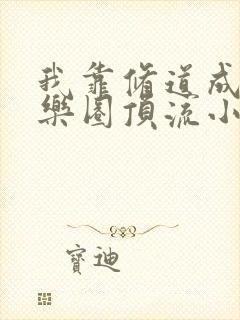 我靠脩道成
樂圈頂流小
寶迪